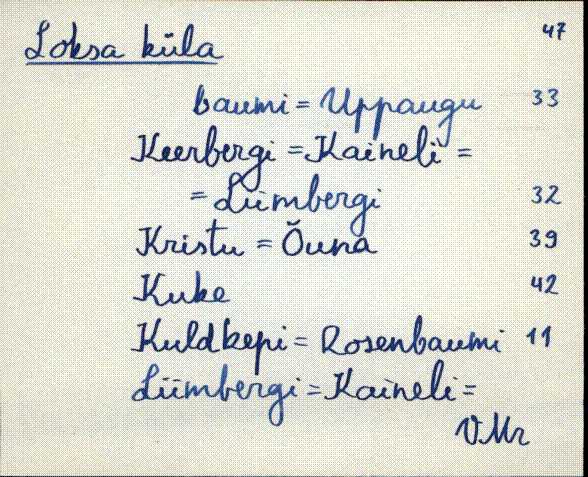 47
Loksa küla
baumi = Uppaugu 33
Keerbergi = Kaineli =
= Liimbergi 32
Kristu = Õuna 39
Kuke 42
Kuldkepi = Rosenbaumi 11
Liimbergi = Kaineli =
VMr